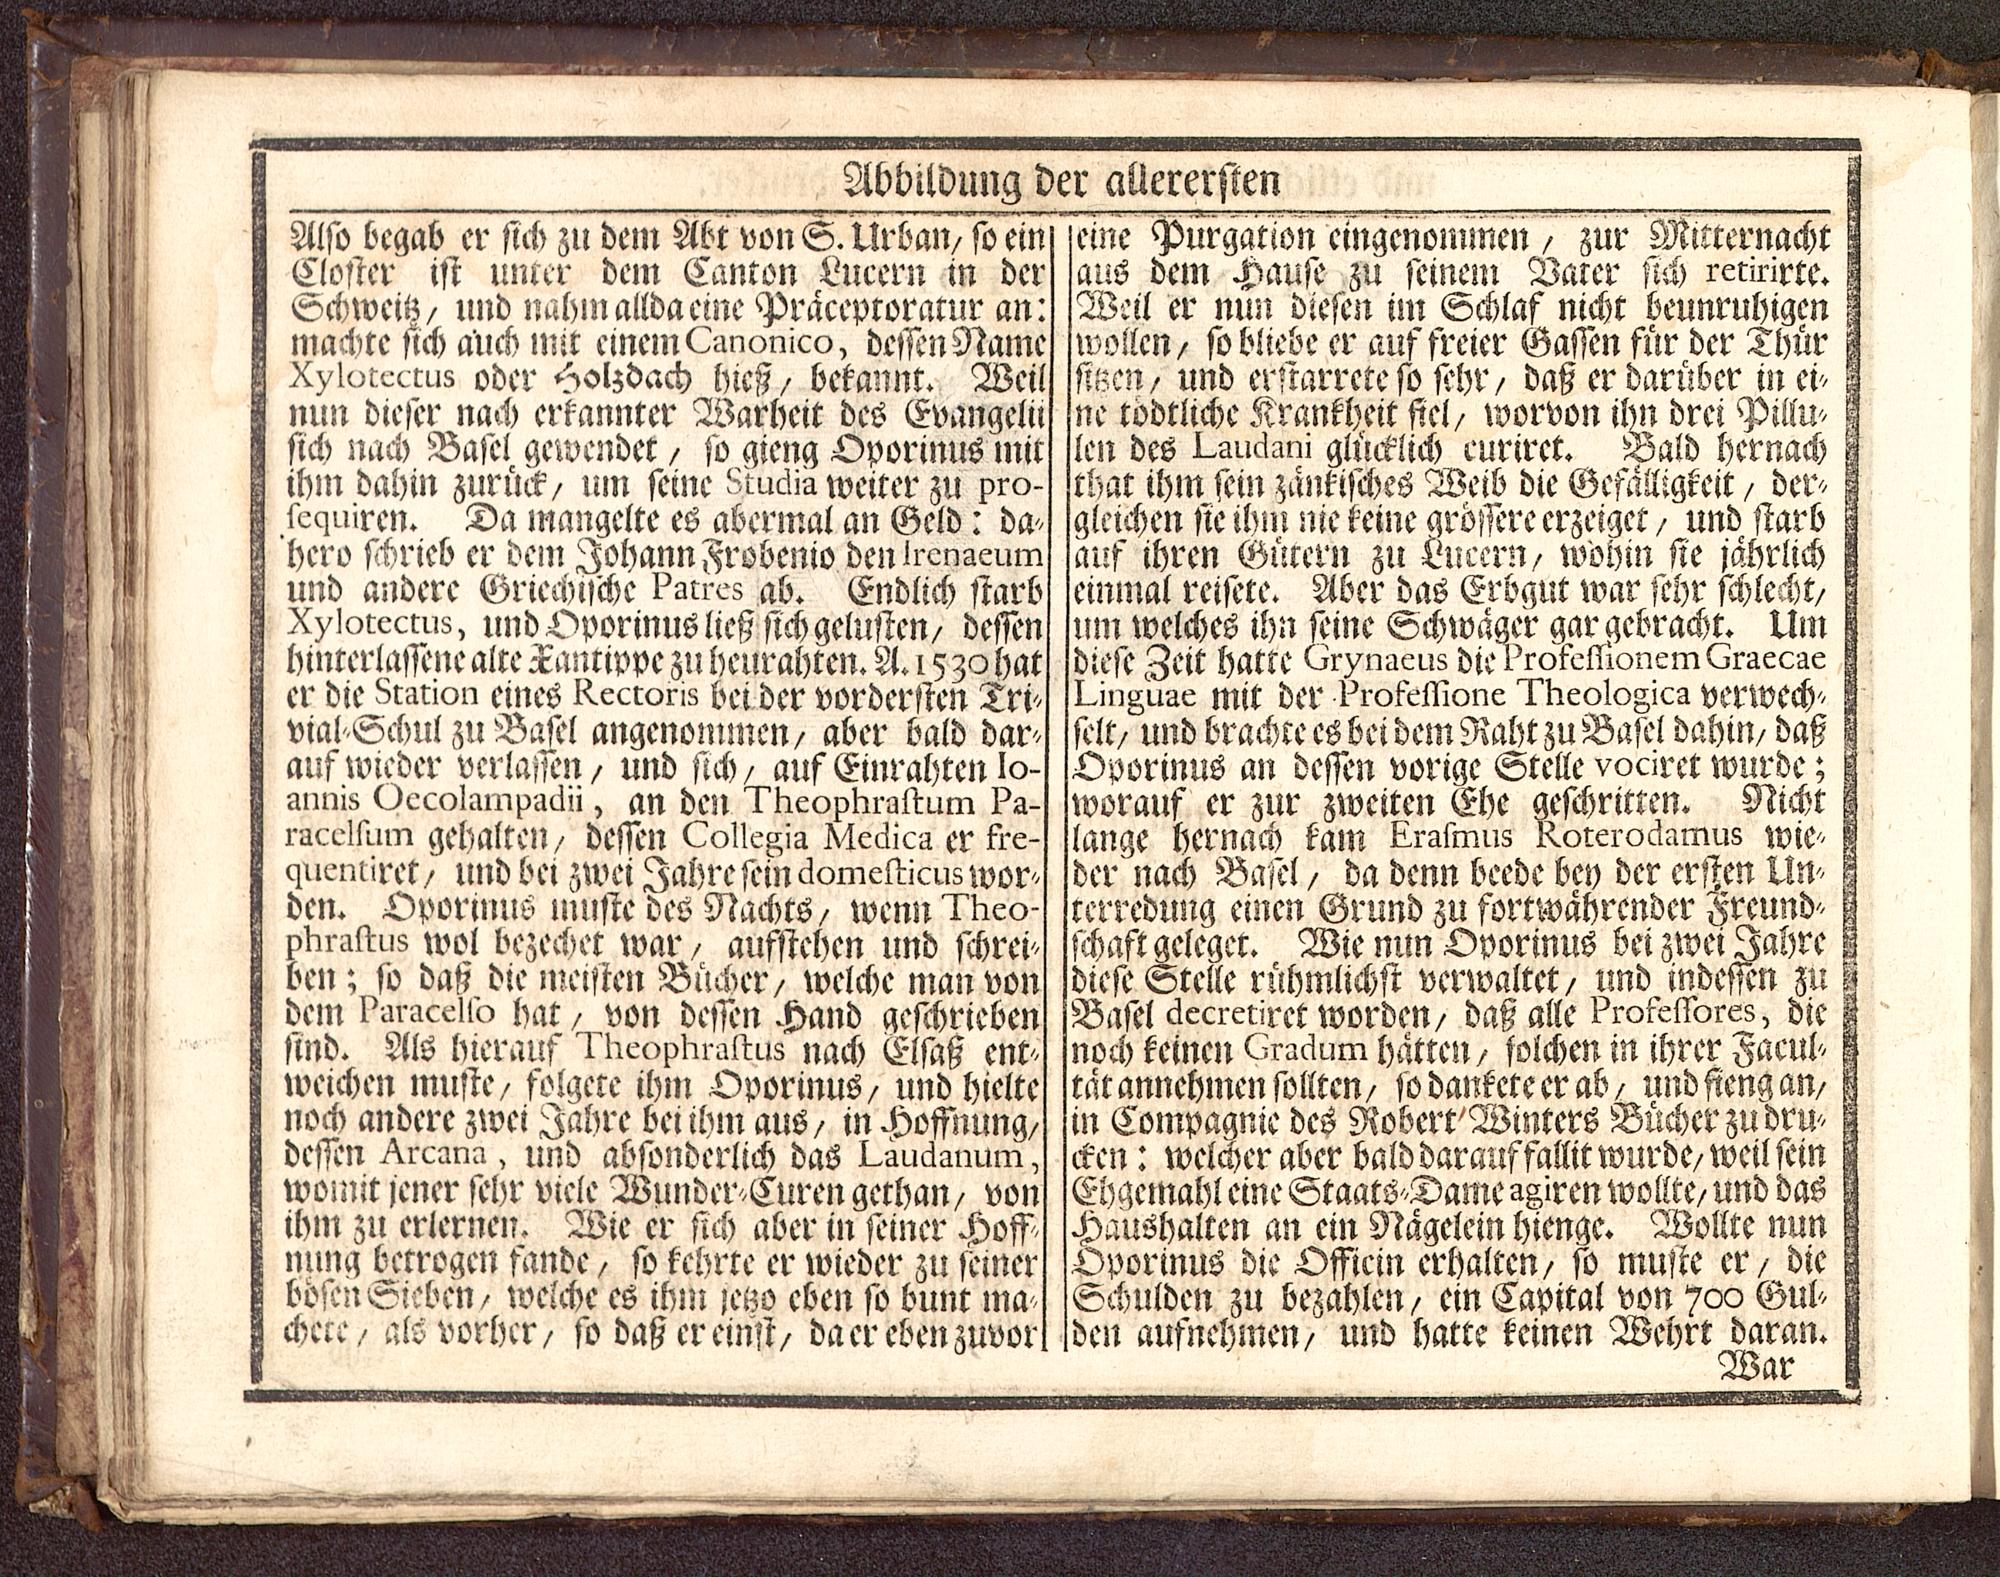 Abbildung der allerersten
Also begab er sich zu dem Abt von S. Urban, so ein
Closter ist unter dem Canton Lucern in der
Schweitz, und nahm allda eine Präceptoratur an:
machte sich auch mit einem Canonico, dessen Name
Xylotectus oder Holzdach hieß, bekannt. Weil
nun dieser nach erkannter Warheit des Evangelii
sich nach Basel gewendet, so gieng Oporinus mit
ihm dahin zurück, um seine Studia weiter zu pro-
sequiren. Da mangelte es abermal an Geld: da-
hero schrieb er dem Johann Frobenio den Irenaeum
und andere Griechische Patres ab. Endlich starb
Xylotectus, und Oporinus ließ sich gelusten, dessen
hinterlassene alte Xantippe zu heurahten. A. 1530 hat
er die Station eines Rectoris bei der vordersten Tri-
vial-Schul zu Basel angenommen, aber bald dar-
auf wieder verlassen, und sich, auf Einrahten Io-
annis Oecolampadii, an den Theophrastum Pa-
racelsum gehalten, dessen Collegia Medica er fre-
quentiret, und bei zwei Jahre sein domesticus wor-
den. Oporinus muste des Nachts, wenn Theo-
phrastus wol bezechet war, aufstehen und schrei-
ben; so daß die meisten Bücher, welche man von
dem Paracelso hat, von dessen Hand geschrieben
sind. Als hierauf Theophrastus nach Elsaß ent-
weichen muste, folgete ihm Oporinus, und hielte
noch andere zwei Jahre bei ihm aus, in Hoffnung,
dessen Arcana, und absonderlich das Laudanum,
womit jener sehr viele Wunder-Curen gethan, von
ihm zu erlernen. Wie er sich aber in seiner Hoff-
nung betrogen fande, so kehrte er wieder zu seiner
bösen Sieben, welche es ihm jetzo eben so bunt ma-
chete, als vorher, so daß er einst, da er eben zuvor
eine Purgation eingenommen, zur Mitternacht
aus dem Hause zu seinem Vater sich retirirte.
Weil er nun diesen im Schlaf nicht beunruhigen
wollen, so bliebe er auf freier Gassen für der Thür
sitzen, und erstarrete so sehr, daß er darüber in ei-
ne tödtliche Krankheit fiel, worvon ihn drei Pillu-
len des Laudani glücklich curiret. Bald hernach
that ihm sein zänkisches Weib die Gefälligkeit, der-
gleichen sie ihm nie keine grössere erzeiget, und starb
auf ihren Gütern zu Lucern, wohin sie jährlich
einmal reisete. Aber das Erbgut war sehr schlecht,
um welches ihn seine Schwäger gar gebracht. Um
diese Zeit hatte Grynaeus die Professionem Graecae
Linguae mit der Professione Theologica verwech-
selt, und brachte es bei dem Raht zu Basel dahin, daß
Oporinus an dessen vorige Stelle vociret wurde;
worauf er zur zweiten Ehe geschritten. Nicht
lange hernach kam Erasmus Roterodamus wie-
der nach Basel, da denn beede bey der ersten Un-
terredung einen Grund zu fortwährender Freund-
schaft geleget. Wie nun Oporinus bei zwei Jahre
diese Stelle rühmlichst verwaltet, und indessen zu
Basel decretiret worden, daß alle Professores, die
noch keinen Gradum hätten, solchen in ihrer Facul-
tät annehmen sollten, so dankete er ab, und fieng an,
in Compagnie des Robert Winters Bücher zu dru-
cken: welcher aber bald darauf fallit wurde, weil sein
Ehgemahl eine Staats-Dame agiren wollte, und das
Haushalten an ein Nägelein hienge. Wollte nun
Oporinus die Officin erhalten, so muste er, die
Schulden zu bezahlen, ein Capital von 700 Gul-
den aufnehmen, und hatte keinen Wehrt daran.
War